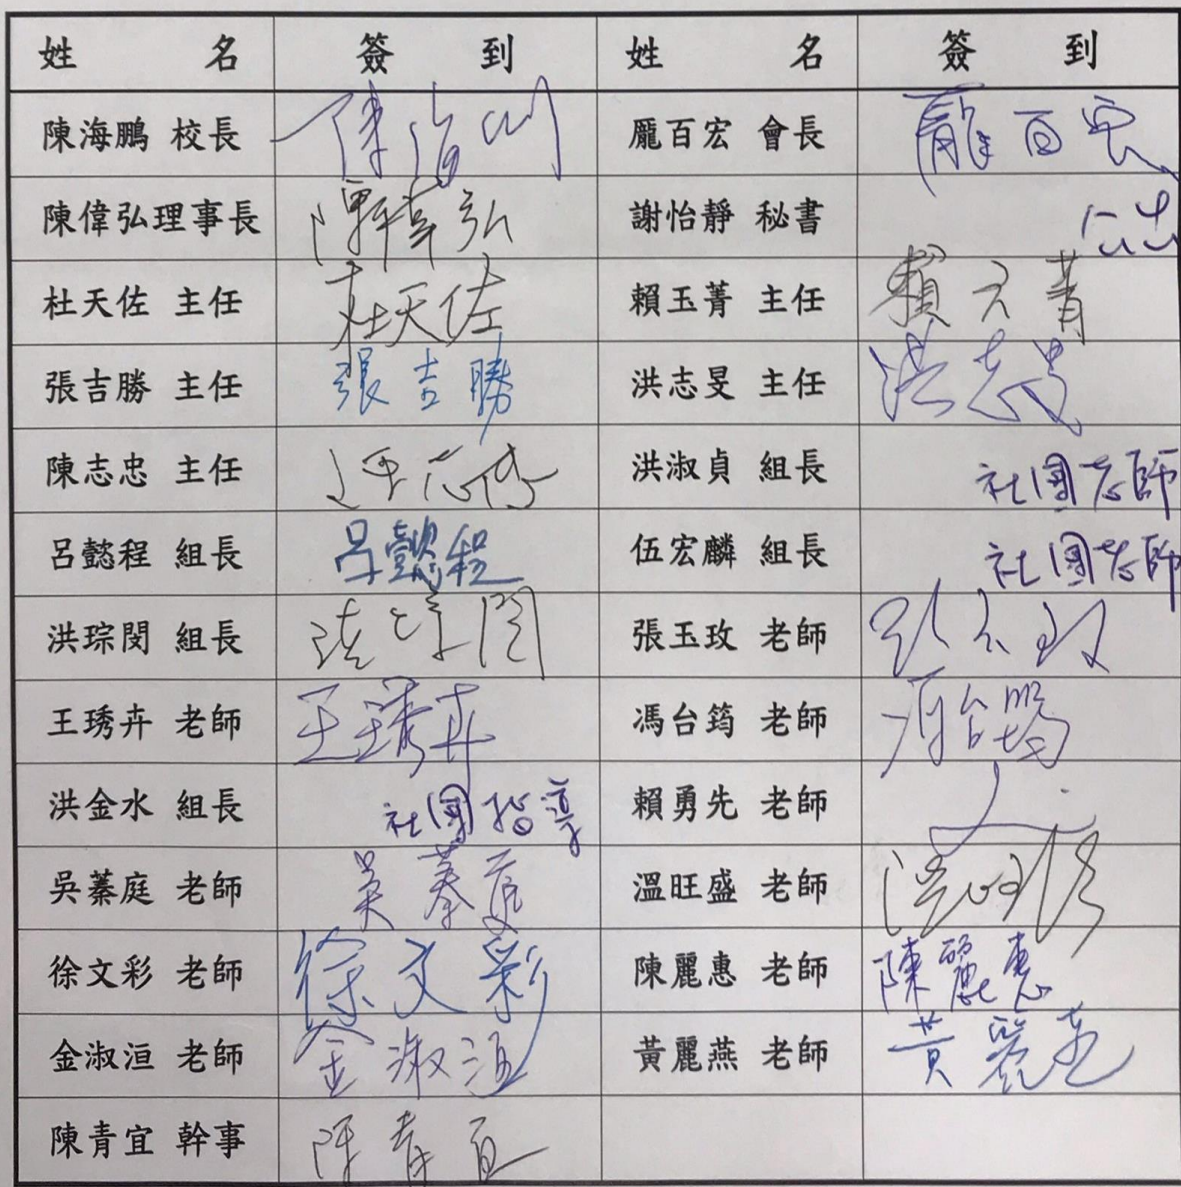 姓名 簽到 姓名 簽到
陳海鵬 校長 龎百宏 會長 龎百宏
陳偉弘理事長 陳偉弘 謝怡靜 秘書 公出
杜天佐 主任 杜天佐 賴玉菁 主任 賴玉菁
張吉勝 主任 張吉勝 洪志旻 主任 洪志旻
陳志忠 主任 洪淑貞 組長 社團老師
呂懿程 組長 呂懿程 伍宏麟 組長 社團老師
洪琮閔 組長 洪琮閔 張玉玫 老師 張玉玫
王琇卉 老師 王琇卉 馮台筠 老師 馮台筠
洪金水 組長 社團指導 賴勇先 老師
吳蓁庭 老師 吳蓁庭 溫旺盛 老師
徐文彩 老師 徐文彩 陳麗惠 老師 陳麗惠
金淑洹 老師 金淑洹 黃麗燕 老師 黃麗燕
陳青宜 幹事 陳青宜